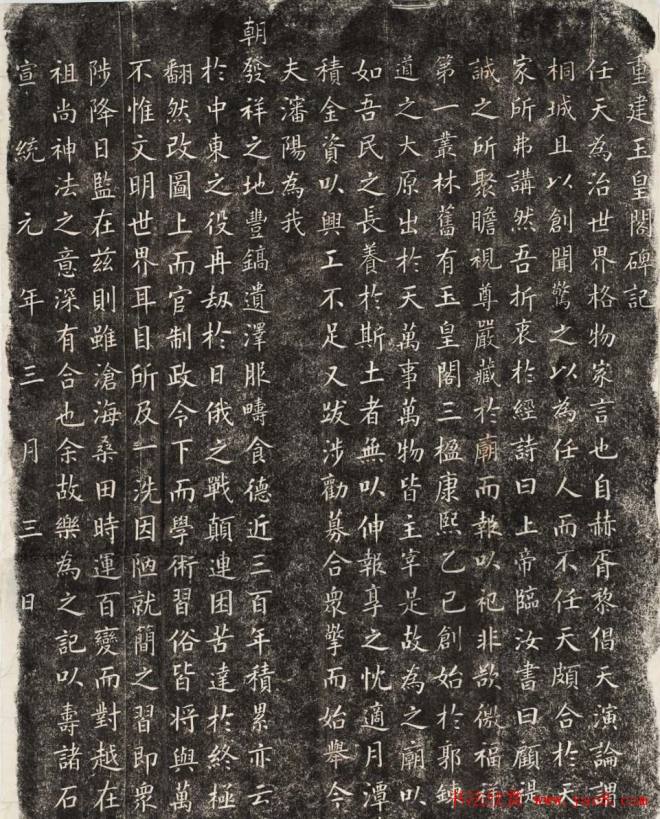 重建玉皇閣碑記
任天為治世界格物家言也自赫胥黎倡天演論謂
桐城且以創聞驚之以為任人而不任天頗合於天
家所弗講然吾折衷於經詩曰上帝臨汝書曰顧諟
誠之所聚瞻視尊嚴藏於廟而報以祀非欲徼福
第一叢林舊有玉皇閣三楹康熙乙己創始於郭鎮
道之大原出於天萬事萬物皆主宰是故為之廟以
如吾民之長養於斯土者無以伸報享之忱適月潭
積金資以興工不足又跋涉勸募合眾擎而始舉今
夫瀋陽為我
朝發祥之地豐鎬遺澤服疇食德近三百年積累亦云
於中東之役再劫於日俄之戰顛連困苦達於終極
翻然改圖上而官制政令下而學術習俗皆將與萬
不惟文明世界耳目所及一洗因陋就簡之習即衆
陟降日監在茲則雖滄海桑田時運百變而對越在
祖尚神法之意深有合也余故樂為之記以壽諸石
宣統元年三月三日